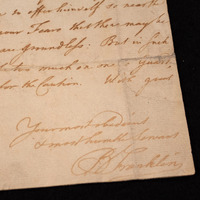 to offer himself to
your Fears that there may be
are groundless: But in such
much on one's guard,
for the Caution. With great
Your most obedient
& most humble Servant
B Franklin